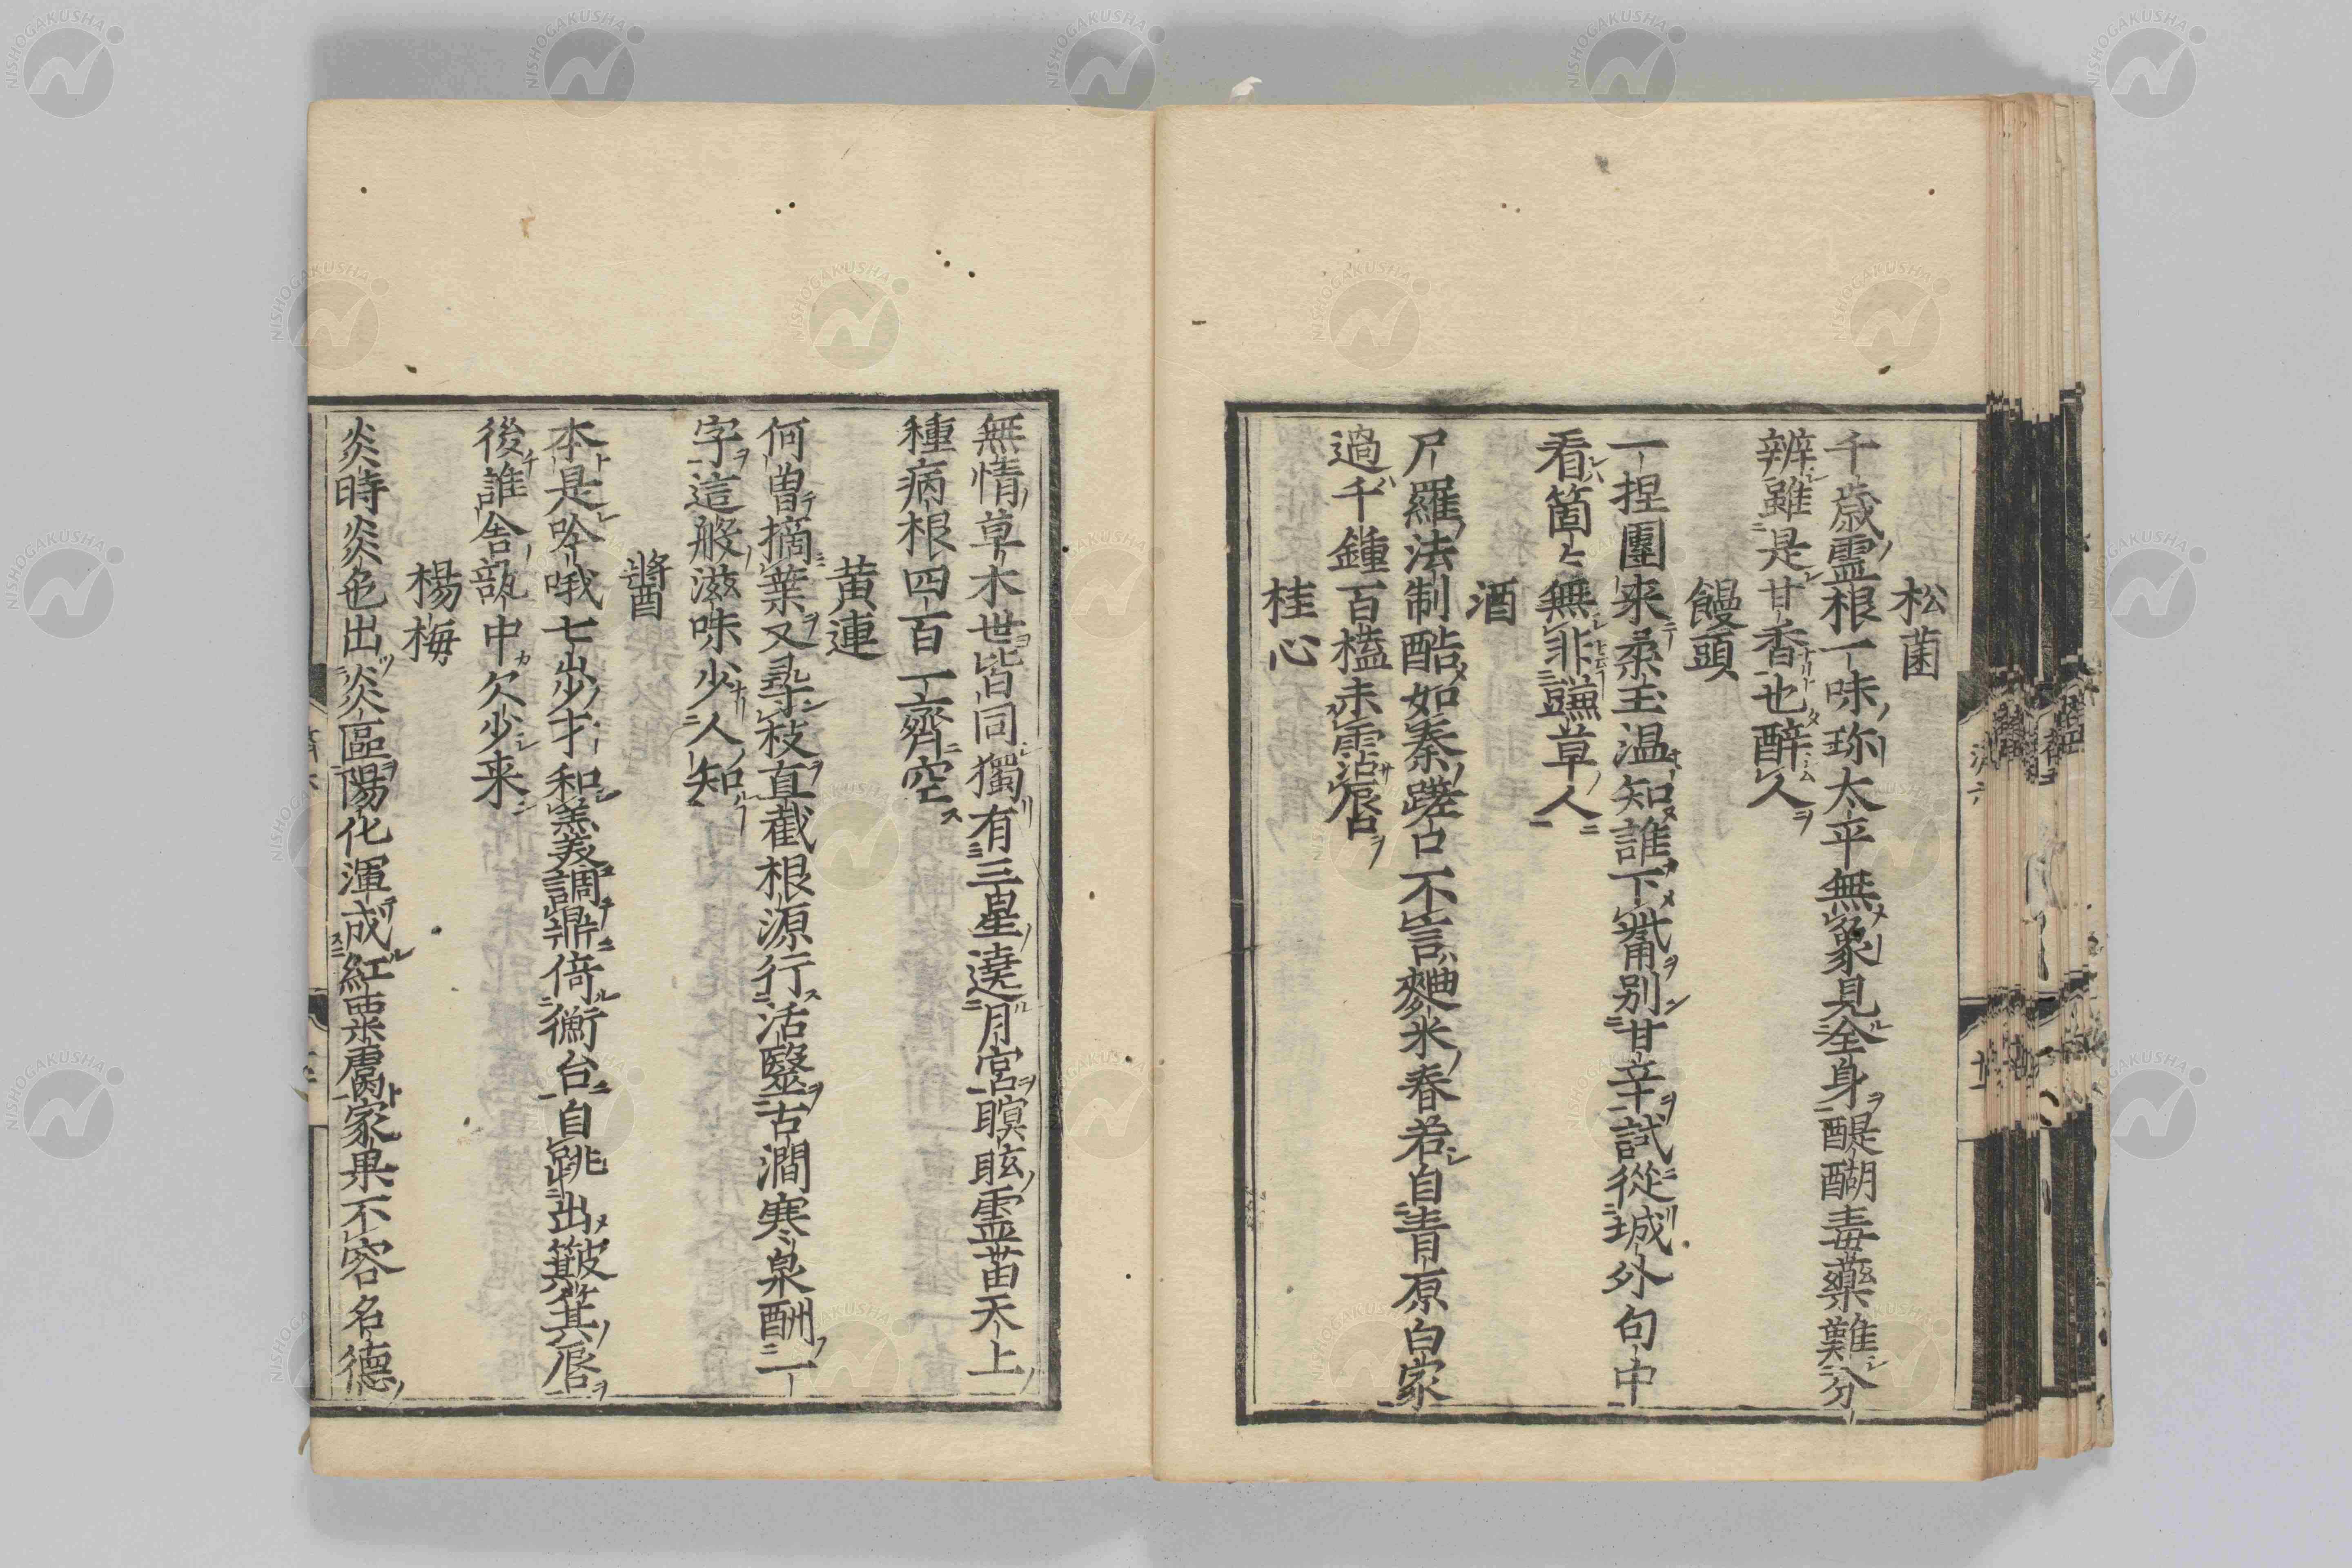 松菌
千歲靈根一味珎太平無象見全身醍醐毒藥難分
辨雖是甘香也醉人
饅頭
一捏團来柔玉温知誰下觜別甘辛試從城外句中
看箇々無非譕草人
酒
尸羅法制酷如秦蹉口不言麯米春若自青原白家
過千鍾百榼未霑唇
桂心
無情草木世皆同獨有三星遶月宮瞑眩靈苗天上
種病根四百一齊空
黄連
何曽摘葉又尋枝直截根源行活毉古澗寒泉酬一
字這般滋味少人知
醬
本是吟哦七步才和羹調鼎倚衡台自跳出簸箕唇
後誰舎瓿中欠少来
楊梅
炎時炎色出炎區陽化渾成紅粟膚家果不容名德